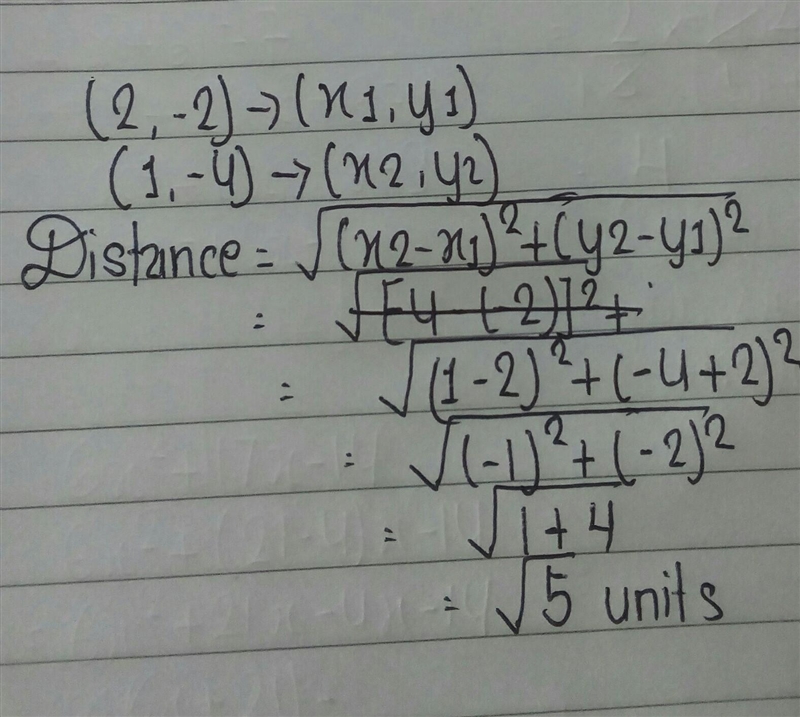 (2,-2)→(x1,y1)
(1,-4)→(x2,y2)
Distance = √(x2-x1)²+(y2-y1)²
= √[4-(-2)]²+
= √(1-2)²+(-4+2)²
= √(-1)²+(-2)²
= √1+4
= √5 units